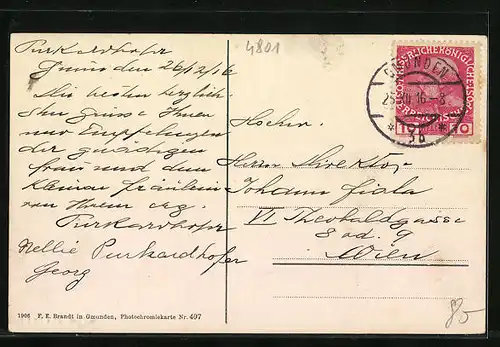 4801
Purkardhofer
Gmunden 26/12/16
Die besten herzlich-
sten Grüsse Ihnen
nur Empfehlungen
der gnädigen
Frau und dem
kleinen Fräulein
von Ihrem erg.
Purkardhofer
Nellie Purkardhofer
Georg
1906 F. E. Brandt in Gmunden, Photochromiekarte Nr. 407
GMUNDEN
16-8
* 3b *
Hochw.
Herrn Direktor
Johann Fiala
VI Theobaldgasse
8 od. 9
Wien
85